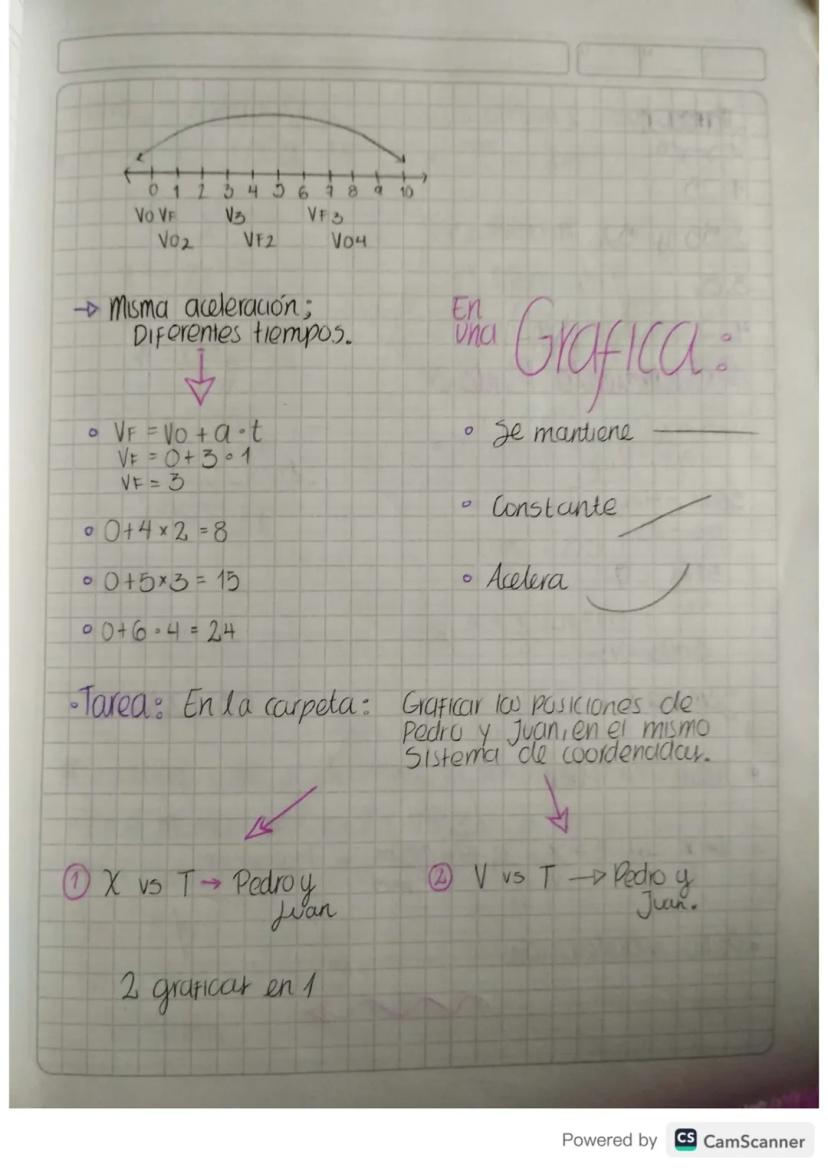 0 1 2 3 4 5 6 7 8 9 10
VO VF V3 VF3
VO2 VF2 VO4
→ Misma aceleración;
Diferentes tiempos.
En
una Grafica:
° VF = VO + a · t
VF = 0 + 3 · 1
VF = 3
° 0+4 × 2 = 8
° 0+5×3 = 15
° 0+6 · 4 = 24
° Se mantiene
° Constante
° Acelera
·Tarea: En la carpeta: Graficar las posiciones de
Pedro y Juan, en el mismo
Sistema de coordenadas.
① X vs T → Pedro y
Juan
② V vs T → Pedro y
Juan.
2 graficas en 1
Powered by CS CamScanner